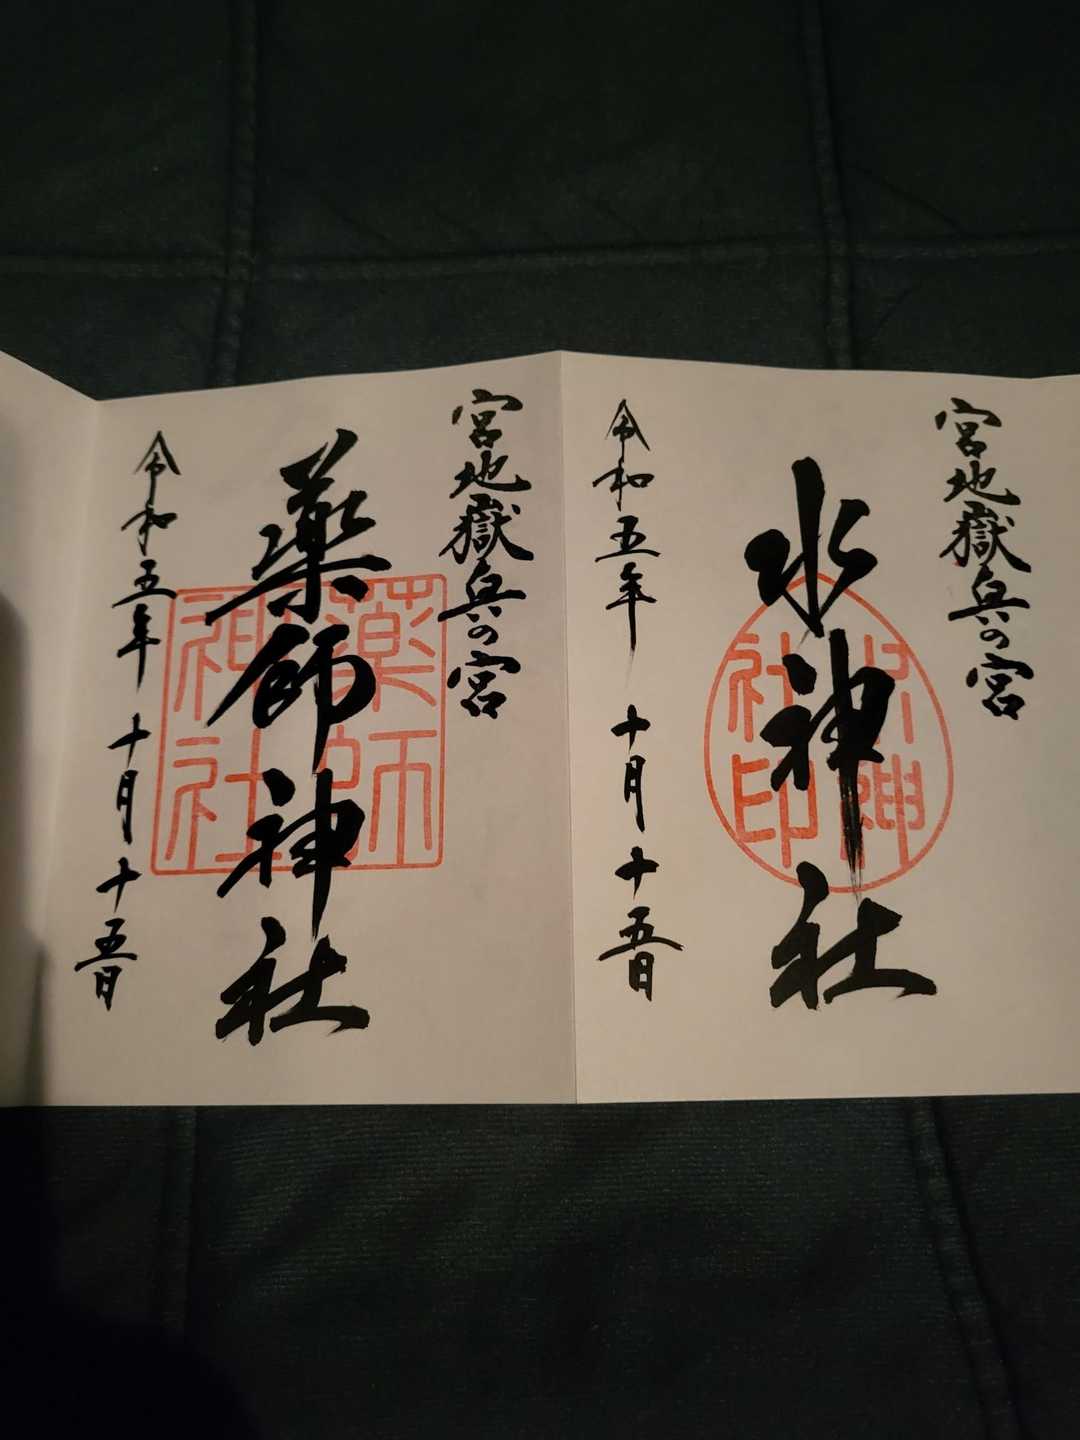 宮地嶽兵の宮
水神社
水神
社印
令和五年 十月十五日
宮地嶽兵の宮
薬師神社
薬師
神社
令和五年 十月十五日